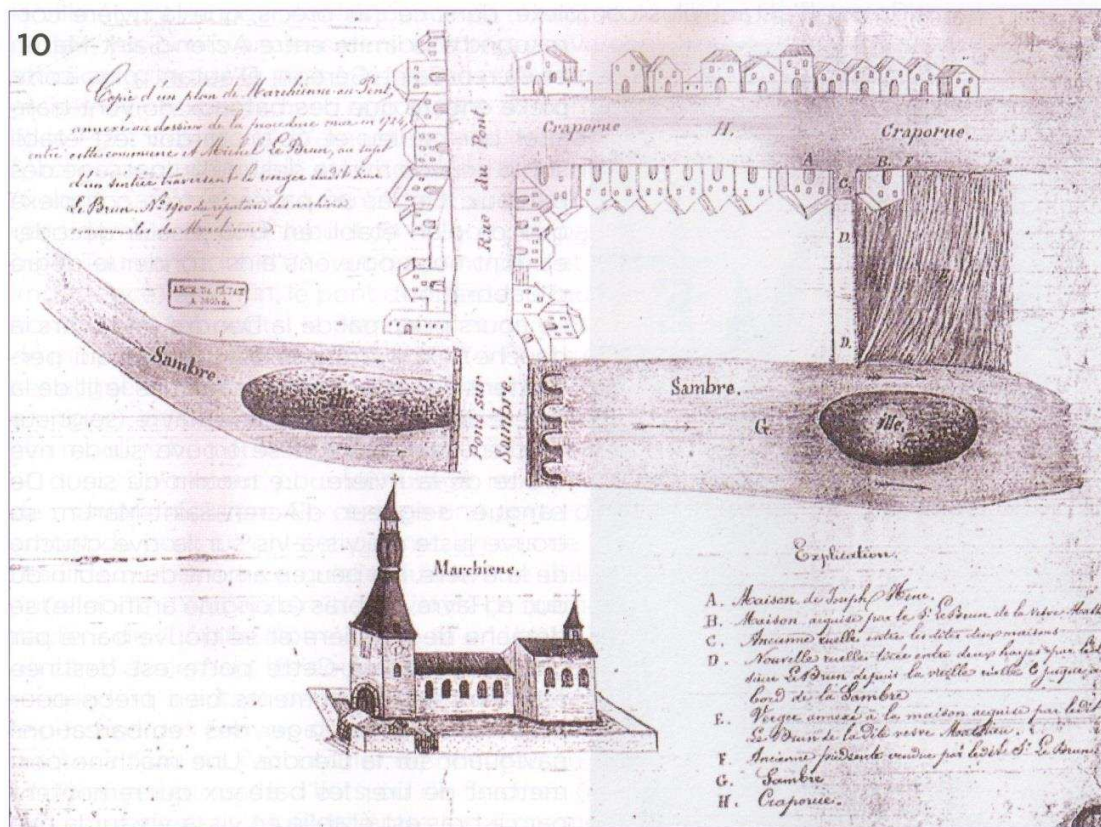 10
Copie d'un plan de Marchienne au Pont,
annexé au dossier de la procédure mue en 1726,
entre cette commune et Michel Le Brun, au sujet
d'un sentier traversant le verger A.B.F.E. du dit
Le Brun. N°
Rue du Pont.
Craporue
H.
Craporue.
A
B.
F.
C.
D.
D.
Sambre.
ille.
Pont sur
Saumbre.
Sambre.
G.
ille.
Marchiene.
Explication.
A. Maison de Joseph
B. Maison acquise par le Sr. Le Brun de la veuve
C. Ancienne ruelle entre les dites deux maisons
D. Nouvelle ruelle tirée entre deux hayes par le dit
sieur Le Brun depuis la vieille ruelle C jusqu'au
bord de la Sambre
E. Verger annexé à la maison acquise par le dit
Le Brun de la dite veuve Matthieu.
F. Ancienne par le dit Sr. Le Brun
G. Sambre
H. Craporue.